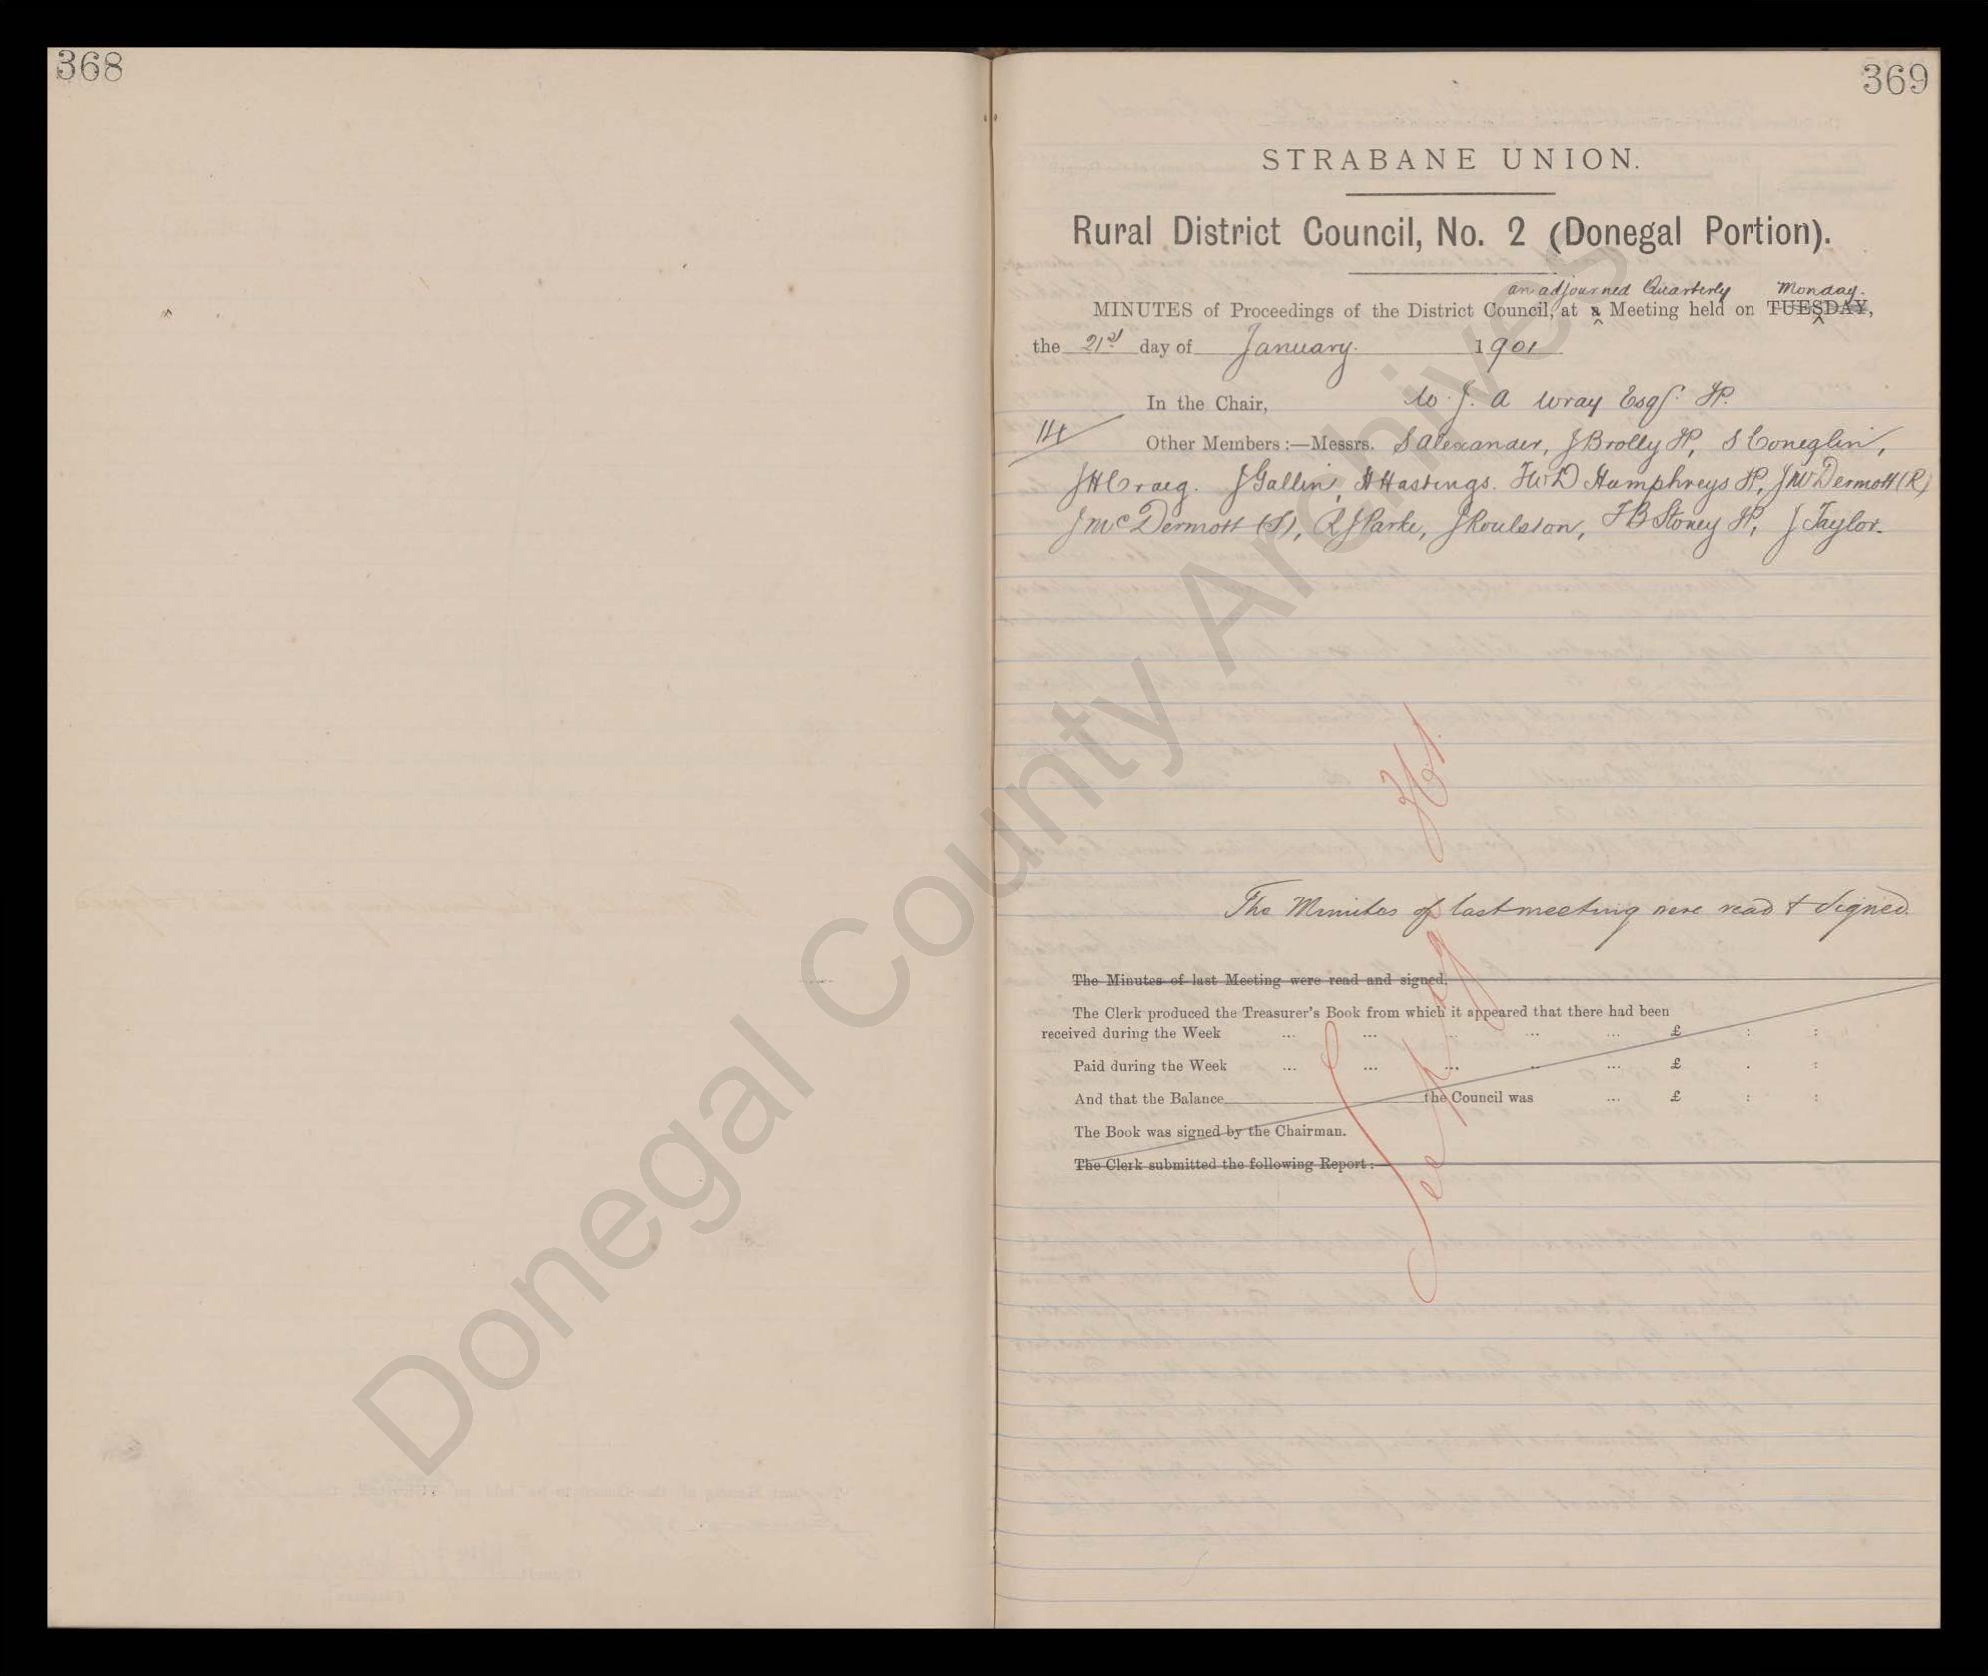 368
369
STRABANE UNION.
Rural District Council, No. 2 (Donegal Portion).
an adjourned Quarterly Monday.
MINUTES of Proceedings of the District Council, at a Meeting held on TUESDAY,
the 21st day of January 1901
In the Chair, W. J. A Wray Esqr. JP.
14
Other Members:—Messrs. S Alexander, J Brolly JP, S Coneglin,
J H Craig. J Gallin, H Hastings. F W D Humphreys JP, J McDermott (R)
J McDermott (S), R J Parke, J Roulston, F B Stoney JP, J Taylor.
The Minutes of last meeting were read & signed.
The Minutes of last Meeting were read and signed.
The Clerk produced the Treasurer's Book from which it appeared that there had been
received during the Week ... ... ... ... ... £ : :
Paid during the Week ... ... ... .. ... £ . :
And that the Balance the Council was ... £ : :
The Book was signed by the Chairman.
The Clerk submitted the following Report:—
See pag
Donegal County Archives